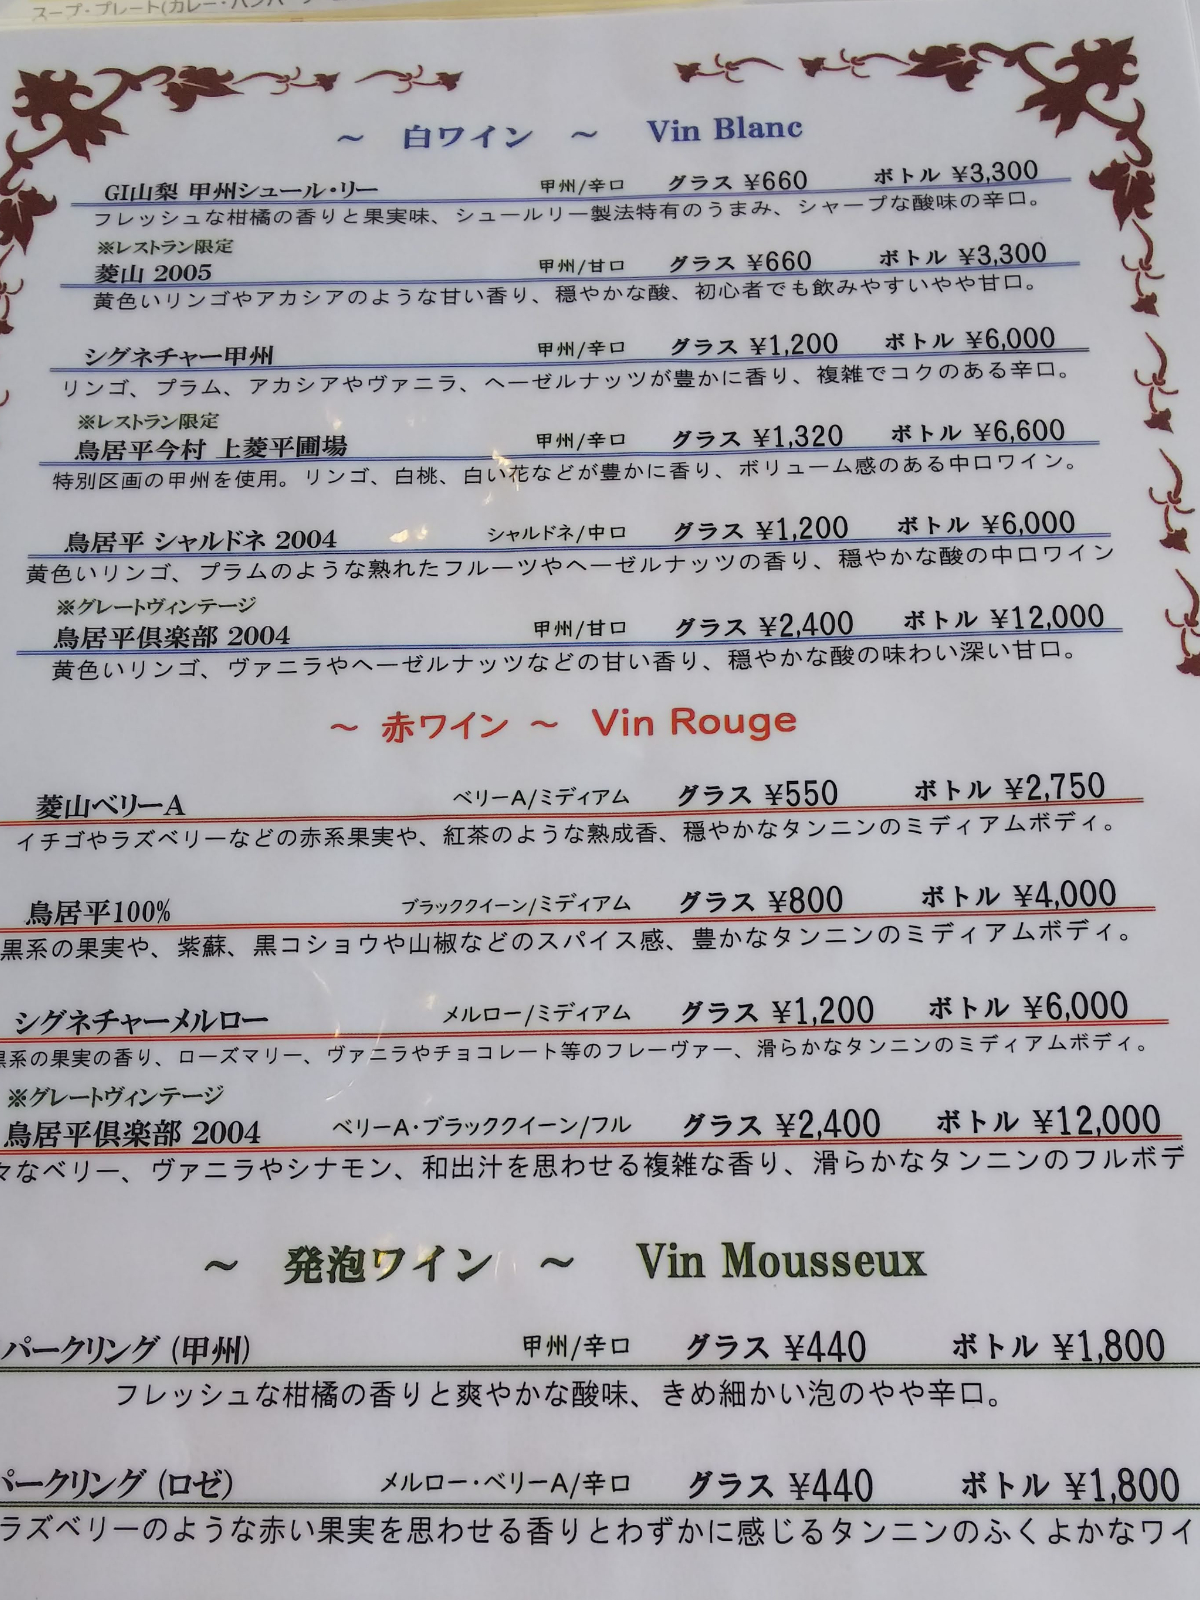 スープ・プレート(カレー・ハンバ
～ 白ワイン ～ Vin Blanc
GI山梨 甲州シュール・リー 甲州/辛口 グラス ¥660 ボトル ¥3,300
フレッシュな柑橘の香りと果実味、シュールリー製法特有のうまみ、シャープな酸味の辛口。
※レストラン限定
菱山 2005 甲州/甘口 グラス ¥660 ボトル ¥3,300
黄色いリンゴやアカシアのような甘い香り、穏やかな酸、初心者でも飲みやすいやや甘口。
シグネチャー甲州 甲州/辛口 グラス ¥1,200 ボトル ¥6,000
リンゴ、プラム、アカシアやヴァニラ、ヘーゼルナッツが豊かに香り、複雑でコクのある辛口。
※レストラン限定
鳥居平今村 上菱平圃場 甲州/辛口 グラス ¥1,320 ボトル ¥6,600
特別区画の甲州を使用。リンゴ、白桃、白い花などが豊かに香り、ボリューム感のある中口ワイン。
鳥居平 シャルドネ 2004 シャルドネ/中口 グラス ¥1,200 ボトル ¥6,000
黄色いリンゴ、プラムのような熟れたフルーツやヘーゼルナッツの香り、穏やかな酸の中口ワイン
※グレートヴィンテージ
鳥居平倶楽部 2004 甲州/甘口 グラス ¥2,400 ボトル ¥12,000
黄色いリンゴ、ヴァニラやヘーゼルナッツなどの甘い香り、穏やかな酸の味わい深い甘口。
～ 赤ワイン ～ Vin Rouge
菱山ベリーA ベリーA/ミディアム グラス ¥550 ボトル ¥2,750
イチゴやラズベリーなどの赤系果実や、紅茶のような熟成香、穏やかなタンニンのミディアムボディ。
鳥居平100% ブラッククイーン/ミディアム グラス ¥800 ボトル ¥4,000
黒系の果実や、紫蘇、黒コショウや山椒などのスパイス感、豊かなタンニンのミディアムボディ。
シグネチャーメルロー メルロー/ミディアム グラス ¥1,200 ボトル ¥6,000
黒系の果実の香り、ローズマリー、ヴァニラやチョコレート等のフレーヴァー、滑らかなタンニンのミディアムボディ。
※グレートヴィンテージ
鳥居平倶楽部 2004 ベリーA・ブラッククイーン/フル グラス ¥2,400 ボトル ¥12,000
々なベリー、ヴァニラやシナモン、和出汁を思わせる複雑な香り、滑らかなタンニンのフルボデ
～ 発泡ワイン ～ Vin Mousseux
パークリング (甲州) 甲州/辛口 グラス ¥440 ボトル ¥1,800
フレッシュな柑橘の香りと爽やかな酸味、きめ細かい泡のやや辛口。
パークリング (ロゼ) メルロー・ベリーA/辛口 グラス ¥440 ボトル ¥1,800
ラズベリーのような赤い果実を思わせる香りとわずかに感じるタンニンのふくよかなワイ